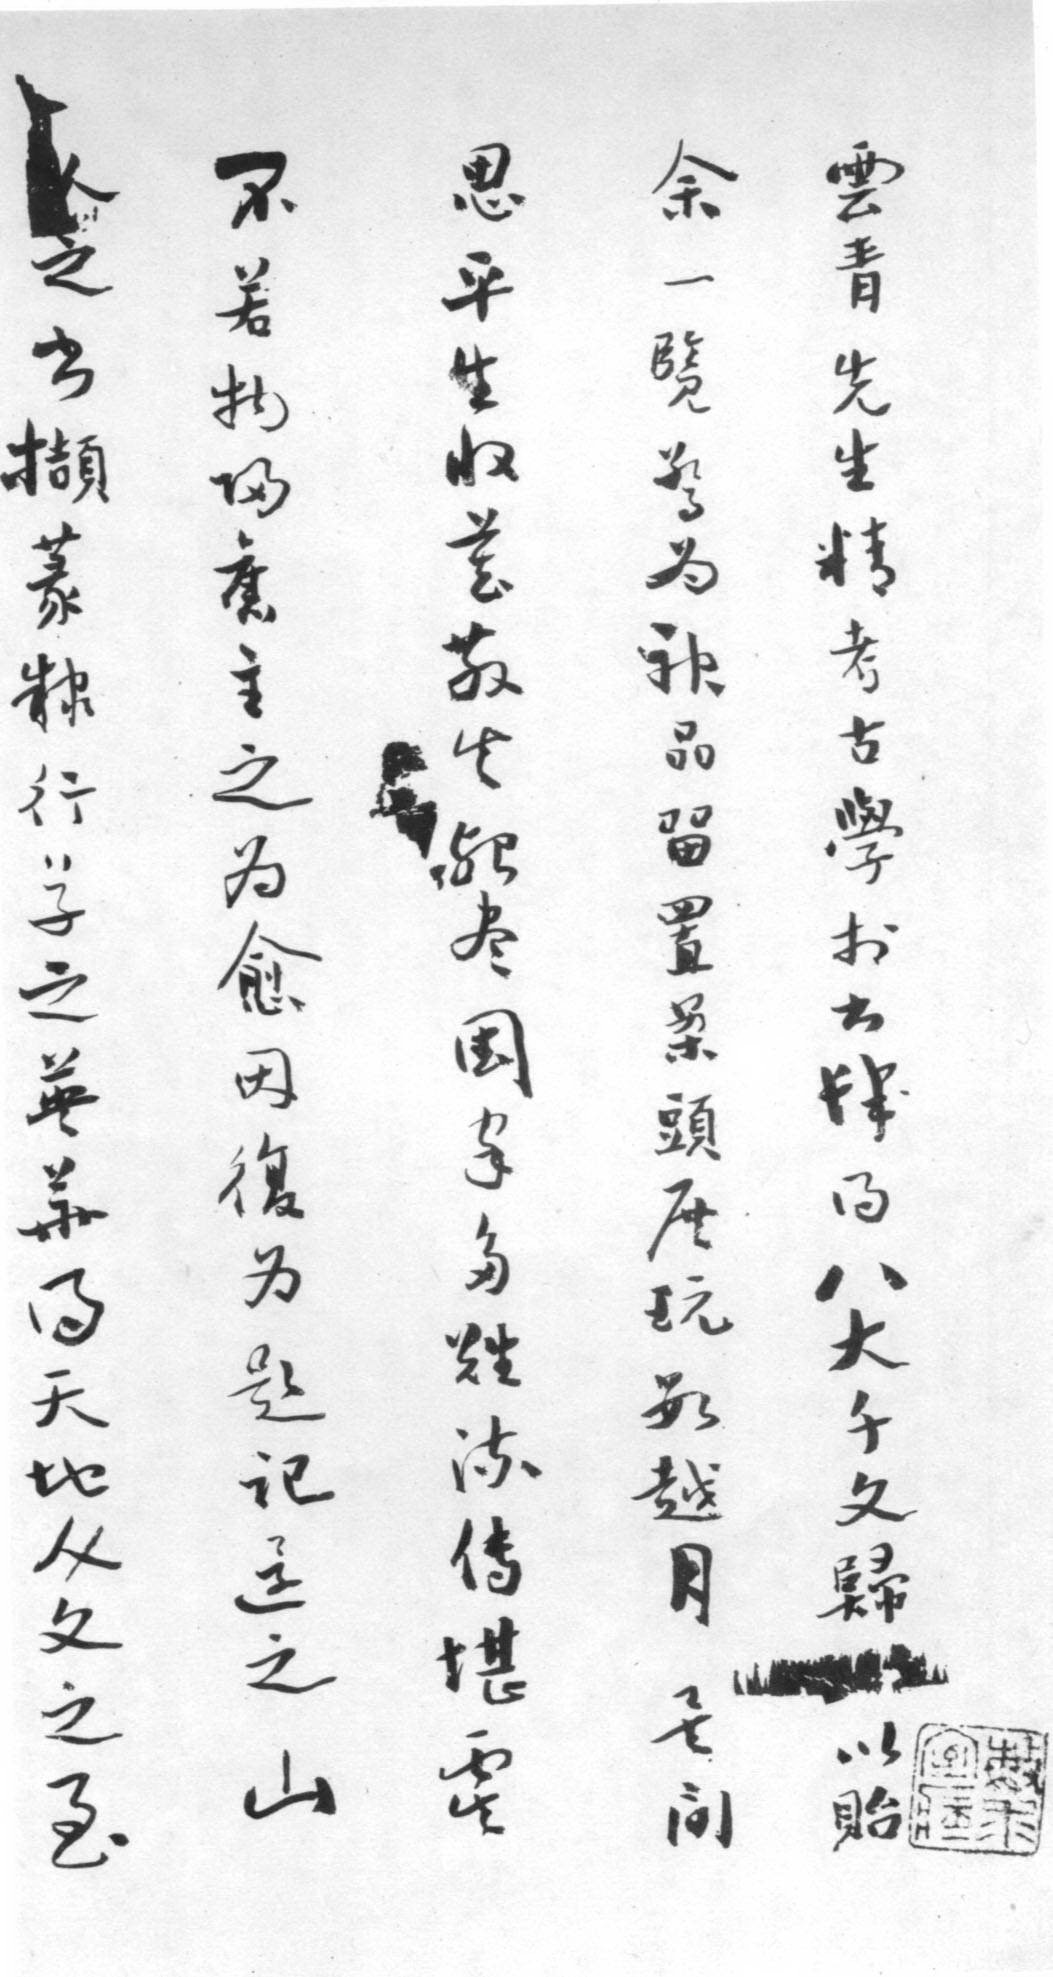 雲青先生精考古學於古牒得八大千文歸以貽
余一覽驚為神品留置案頭展玩數越月矣間
思平生收藏散失殆盡國家多難流傳堪虞
不若物歸舊主之為愈因復為題記還之山
人之書擷篆隸行草之英華得天地人文之至